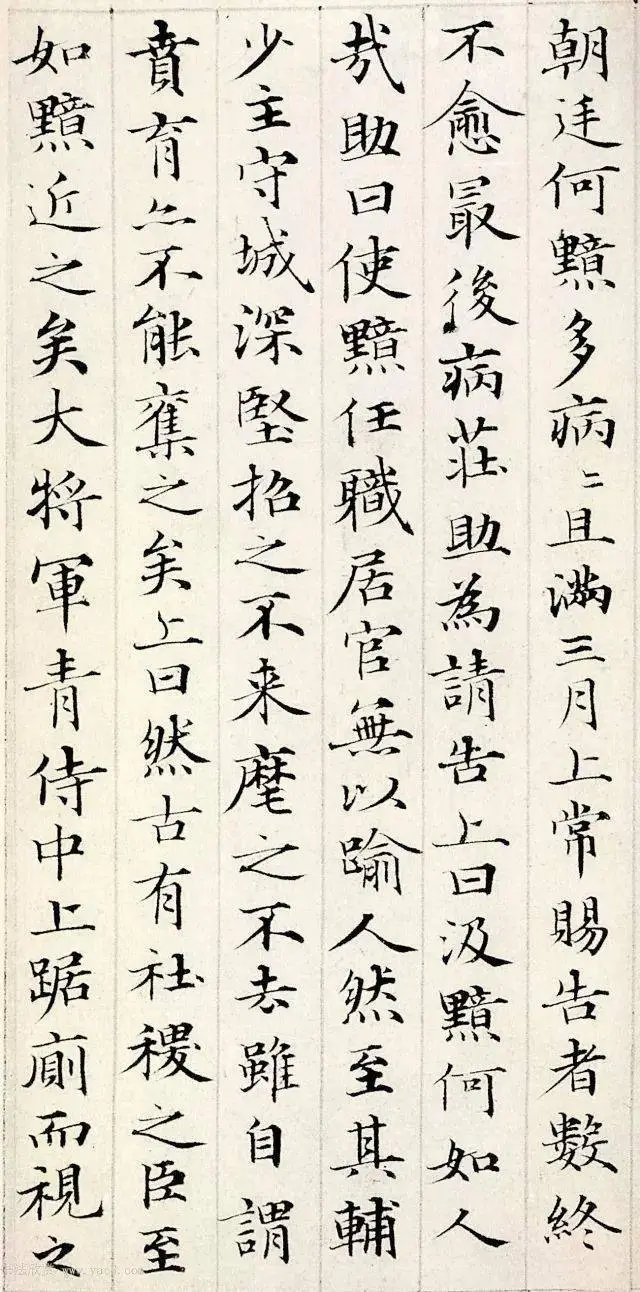 朝廷何黯多病〻且滿三月上常賜告者數終
不愈最後病莊助為請告上曰汲黯何如人
㢤助曰使黯任職居官無以踰人然至其輔
少主守城深堅招之不来麾之不去雖自謂
賁育亦不能奪之矣上曰然古有社稷之臣至
如黯近之矣大将軍青侍中上踞廁而視之